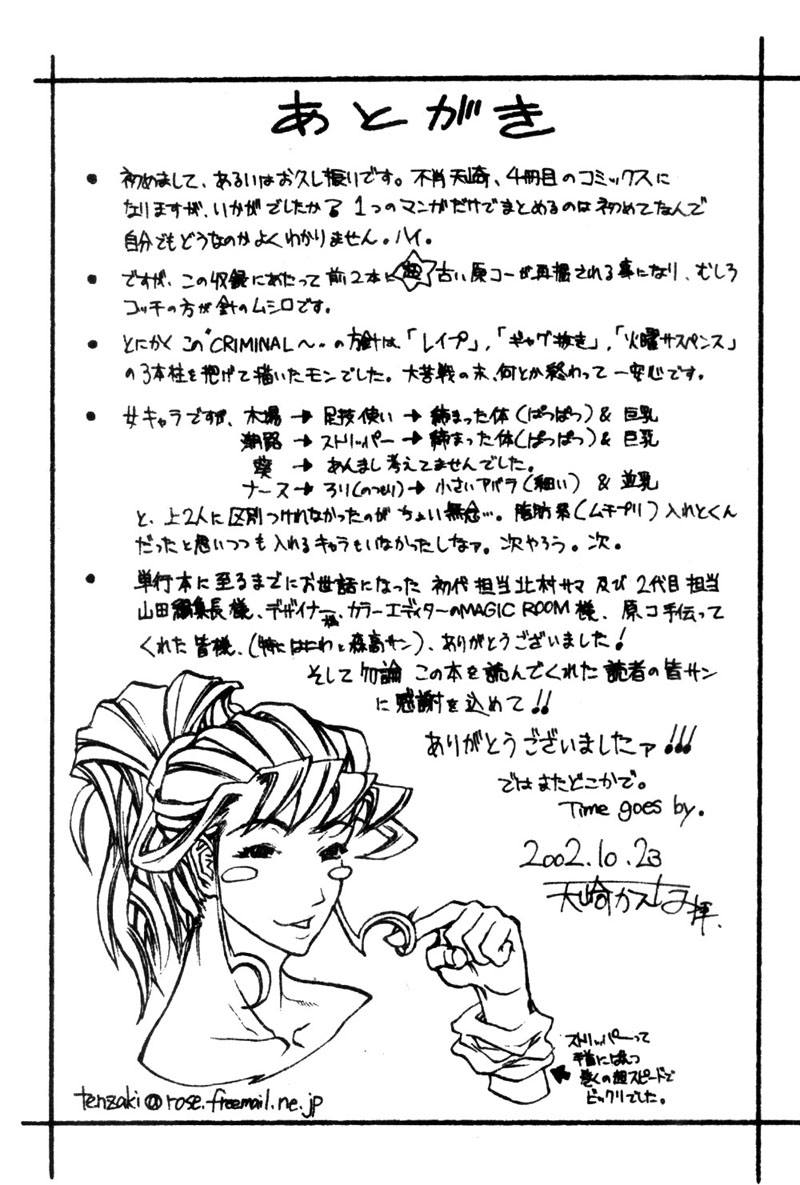 あとがき
• 初めまして、あるいはお久し振りです。不肖天崎、4冊目のコミックスに
なりますが、いかがでしたか? 1つのマンガだけでまとめるのは初めてなんで
自分でもどうなのかよくわかりません。ハイ。
• ですが、この収録にあたって前2本に超古い原コーが再掲される事になり、むしろ
コッチの方が針のムシロです。
• とにかくこの"CRIMINAL〜"の方針は、「レイプ」,「ギャグ抜き」,「火曜サスペンス」
の3本柱を掲げて描いたモンでした。大苦戦の末、何とか終わって一安心です。
• 女キャラですが、木場 → 足技使い → 締まった体(ぱっぱつ) & 巨乳
潮路 → ストリッパー → 締まった体(ぱっぱつ) & 巨乳
葵 → あんまし考えてませんでした。
ナース → ろり(のつもり) → 小さいアバラ(細い) & 並乳
と、上2人に区別つけれなかったのがちょい無念…。脂肪系(ムチプリ)入れとくん
だったと思いつつも入れるキャラもいなかったしなァ。次やろう。次。
• 単行本に至るまでにお世話になった 初代担当北村サマ 及び 2代目担当
山田編集長様、デザイナー様、カラーエディターのMAGIC ROOM様、原コ手伝って
くれた皆様、(特にはにわと森高サン)、ありがとうございました!
そして勿論 この本を読んでくれた読者の皆サン
に感謝を込めて!!
ありがとうございましたァ!!!
ではまたどこかで。
Time goes by.
2002.10.23
天崎かんな 拝.
ストリッパーって
手首にぱんつ
巻くの超スピードで
ビックリでした。
tenzaki@rose.freemail.ne.jp